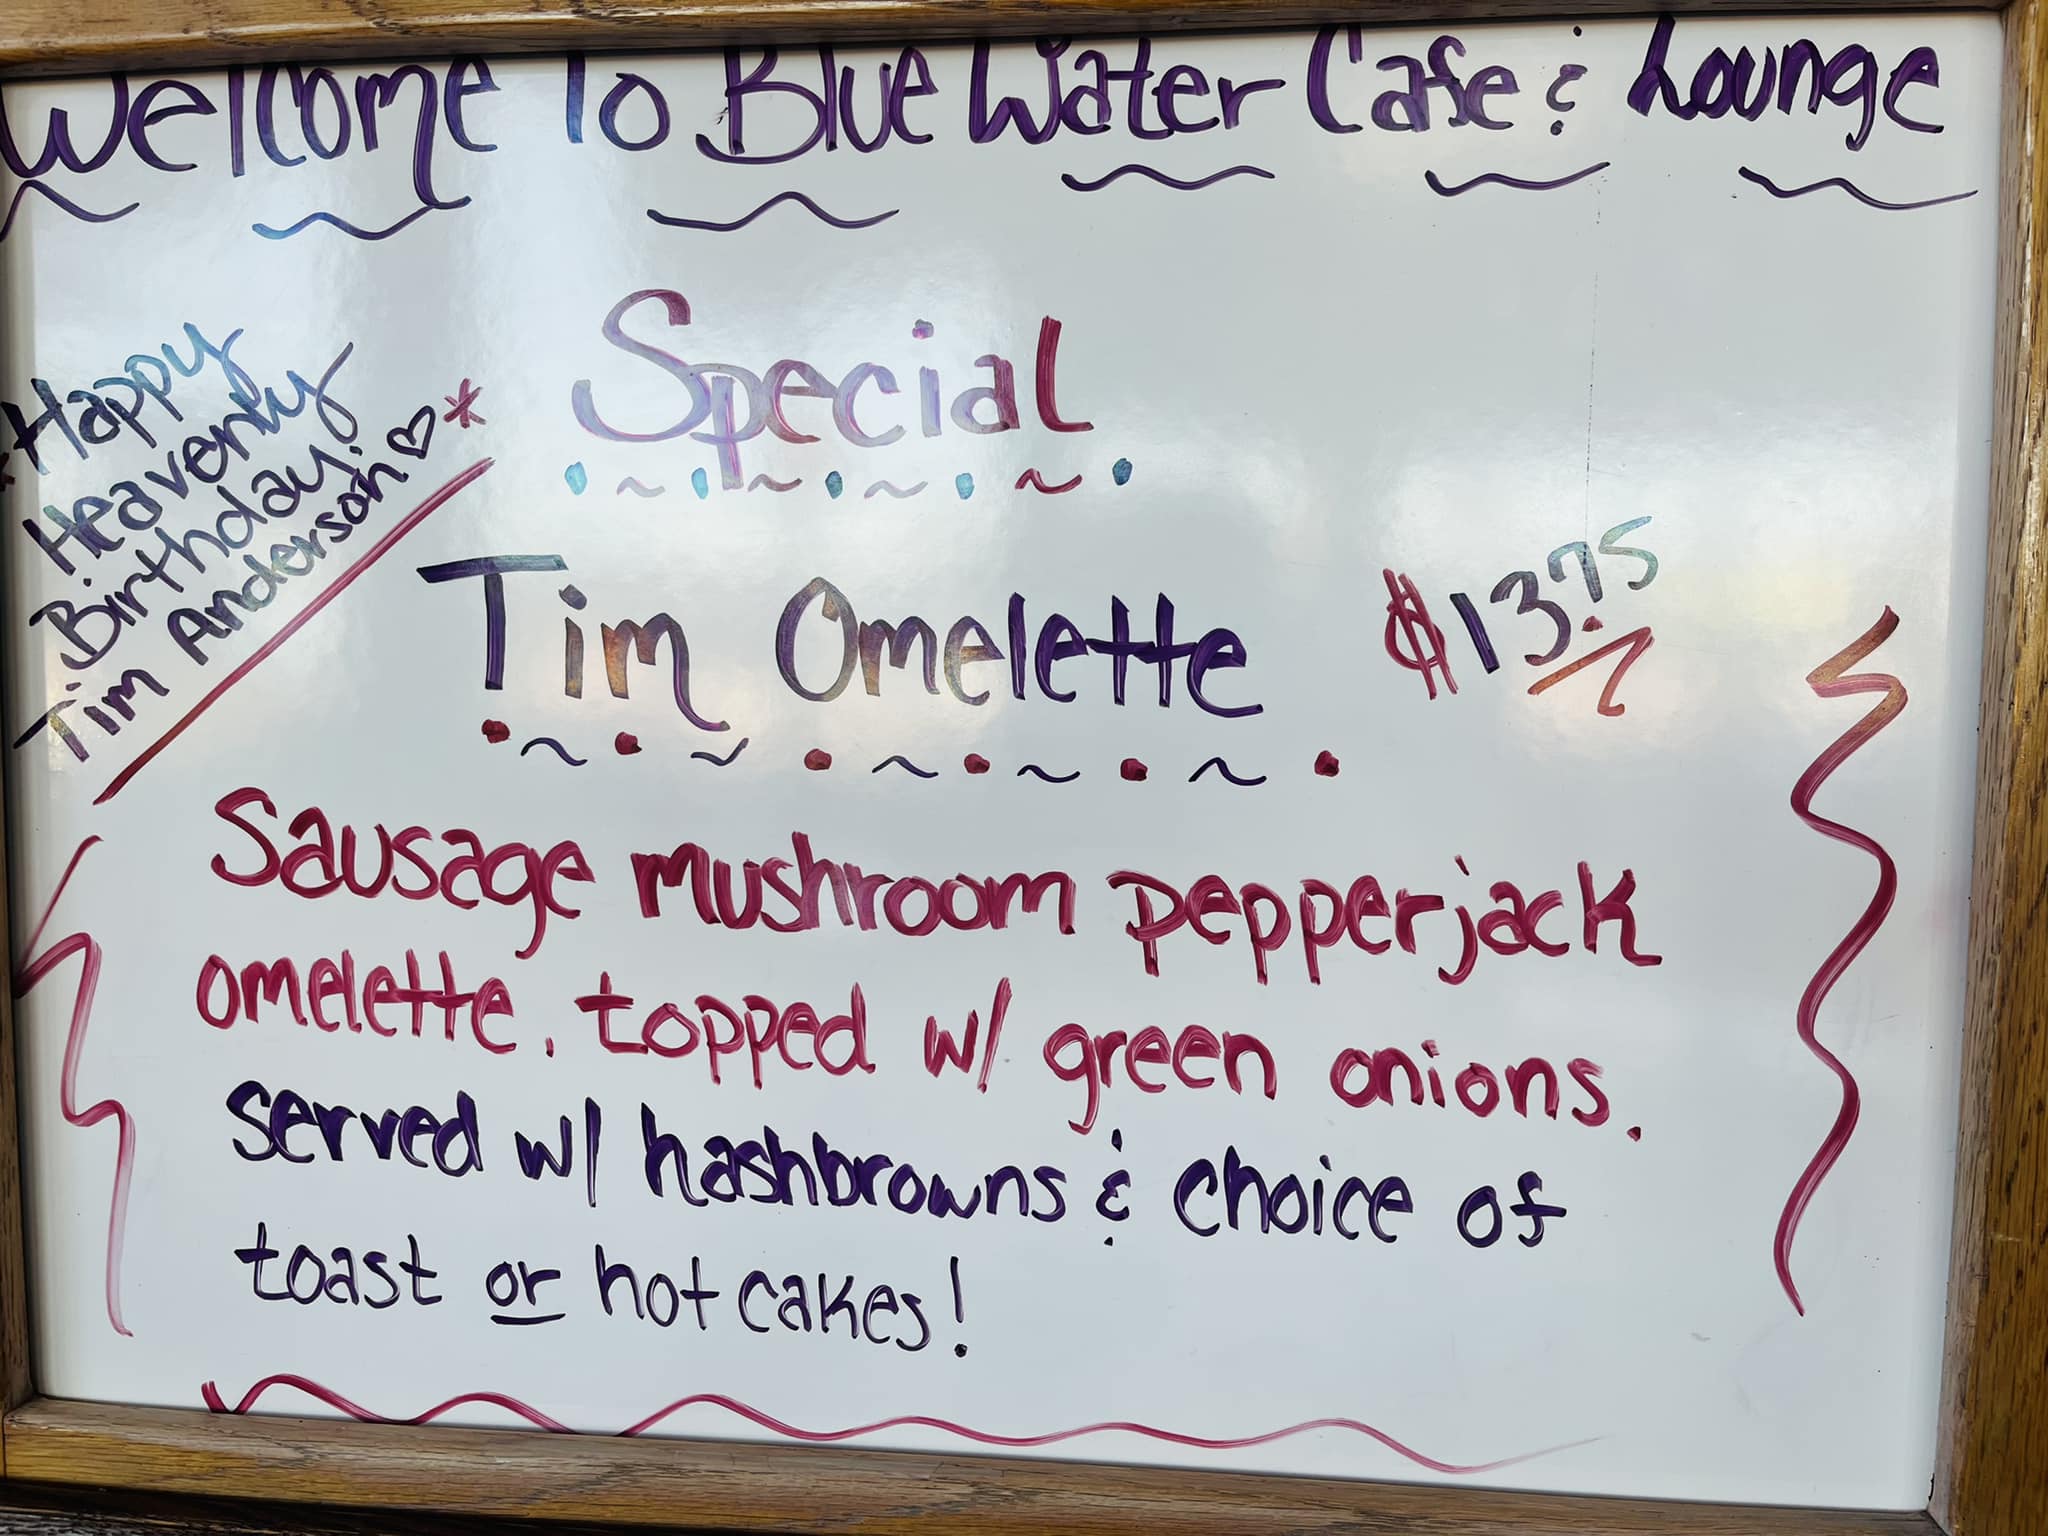 Welcome To Blue Water Cafe & Lounge
Happy
Heavenly
Birthday!
Tim Anderson
Special
Tim Omelette $13.75
Sausage mushroom pepperjack
omelette. topped w/ green onions.
served w/ hashbrowns & choice of
toast or hot cakes!